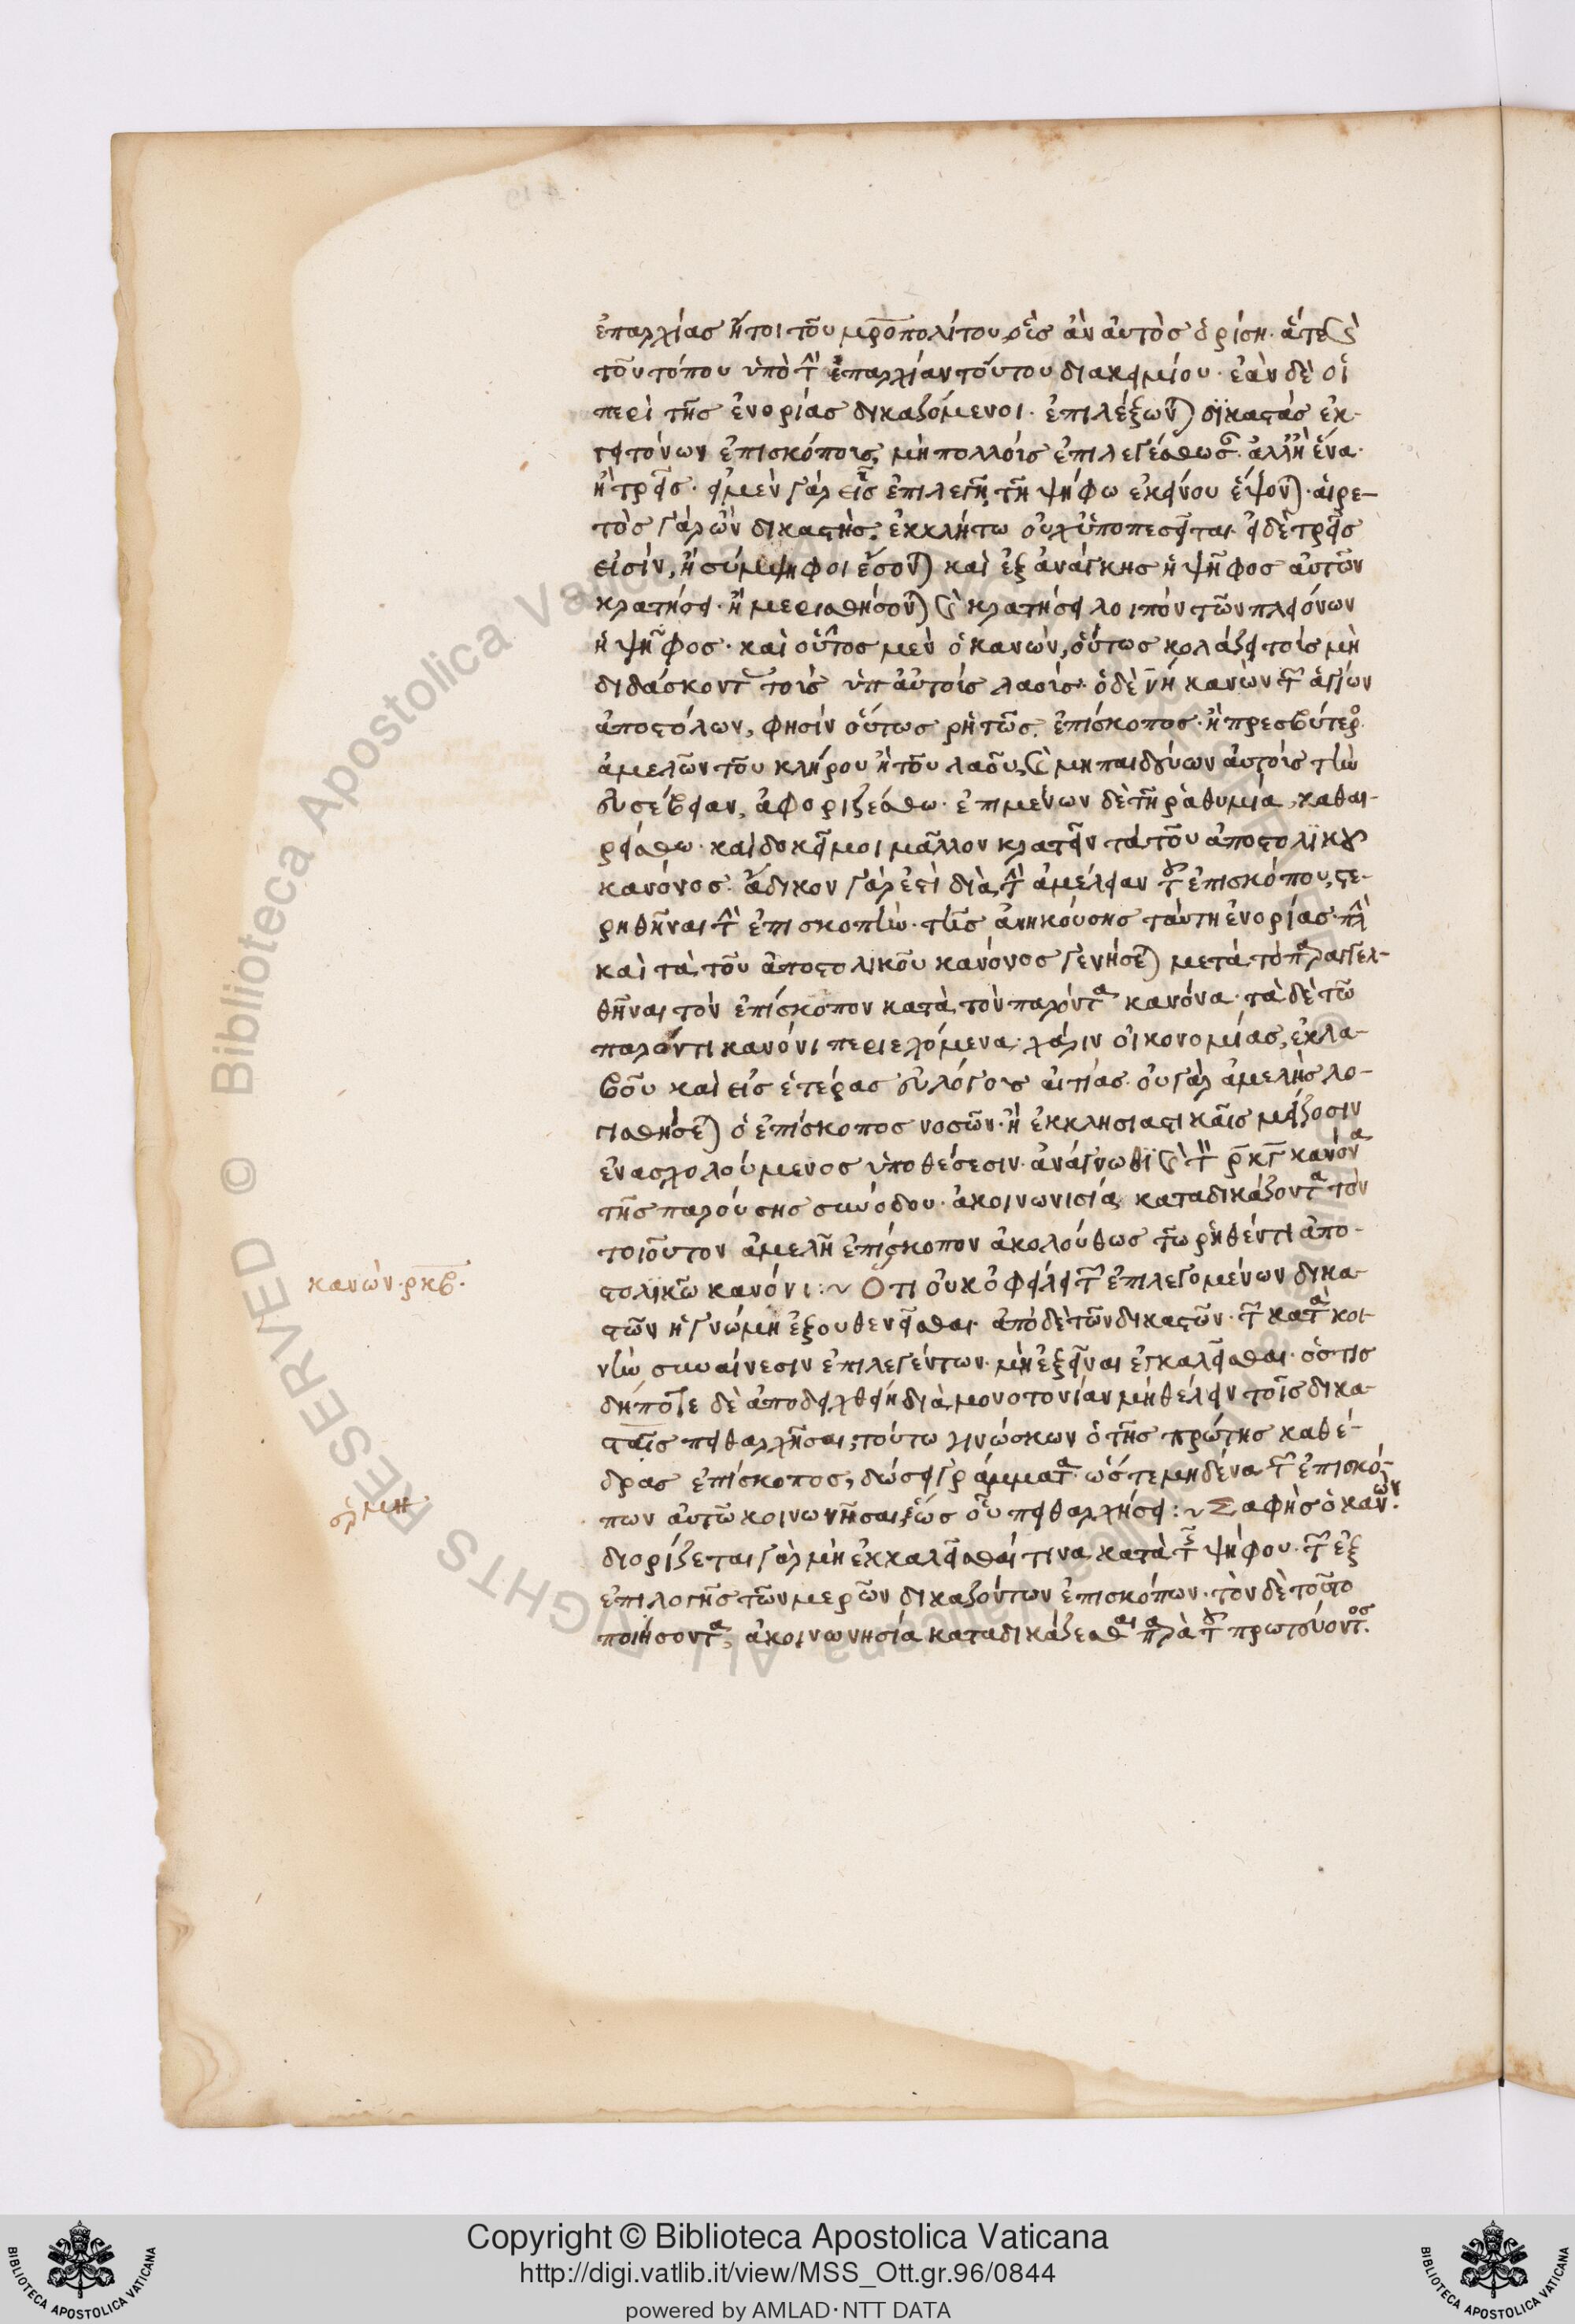 ἐπαρχίας ἤτοι τοῦ μροπολίτου, οἷς ἂν αὐτὸς ὁρίση· ἅτε καὶ
τοῦ τόπου ὑπὸ τὴν ἐπαρχίαν τούτου διακειμένου· ἐὰν δὲ οἱ
περὶ τῆς ἐνορίας δικαζόμενοι· ἐπιλέξωνται δικαστὰς ἐκ
γειτόνων ἐπισκόπους, μὴ πολλοὺς ἐπιλεγέσθωσαν· ἀλλ' ἢ ἕνα·
ἢ τρεῖς· εἰ μὲν γὰρ εἷς ἐπιλεγῆ, τῆ ψήφω ἐκείνου ἕψονται· αἱρε-
τὸς γὰρ ὢν δικαστὴς, ἐκκλήτω οὐχ ὑποπεσεῖται· εἰ δὲ τρεῖς
εἰσὶν, ἢ σύμψηφοι ἔσονται καὶ ἐξ ἀνάγκης ἡ ψῆφος αὐτῶν
κρατήσει· ἢ μερισθήσονται καὶ κρατήσει λοιπὸν τῶν πλειόνων
ἡ ψῆφος· καὶ οὗτος μὲν ὁ κανὼν, οὕτως κολάζει τοὺς μὴ
διδάσκοντας τοὺς ὑπ' αὐτοὺς λαούς· ὁ δὲ νη κανὼν τῶν ἁγίων
ἀποστόλων, φησὶν οὕτως ῥητῶς. ἐπίσκοπος· ἢ πρεσβύτερος
ἀμελῶν τοῦ κλήρου ἢ τοῦ λαοῦ, καὶ μὴ παιδεύων αὐτοὺς τὴν
εὐσέβειαν, ἀφοριζέσθω· ἐπιμένων δὲ τῆ ῥαθυμία, καθαι-
ρείσθω· καὶ δοκεῖ μοι μᾶλλον κρατεῖν τὰ τοῦ ἀποστολικοῦ
κανόνος· ἄδικον γάρ ἐστι διὰ τὴν ἀμέλειαν τοῦ ἐπισκόπου, στε-
ρηθῆναι τὴν ἐπισκοπὴν· τῆς ἀνηκούσης ταύτη ἐνορίας· πλὴν
καὶ τὰ τοῦ ἀποστολικοῦ κανόνος γενήσεται μετὰ τὸ παραγγελ-
θῆναι τὸν ἐπίσκοπον κατὰ τὸν παρόντα κανόνα· τὰ δὲ τῶ
παρόντι κανόνι περιεχόμενα χάριν οἰκονομίας, ἐκλα-
βοῦ καὶ εἰς ἑτέρας εὐλόγους αἰτίας· οὐ γὰρ ἀμελὴς λο-
γισθήσεται ὁ ἐπίσκοπος νοσῶν· ἢ ἐκκλησιαστικαῖς μείζοσιν
ἐνασχολούμενος ὑποθέσεσιν· ἀνάγνωθι καὶ τὸν ρκγ κανόνα
τῆς παρούσης συνόδου· ἀκοινωνησία καταδικάζοντα τὸν
τοιοῦτον ἀμελῆ ἐπίσκοπον ἀκολούθως τῶ ῥηθέντι ἀπο-
στολικῶ κανόνι:~ Ὅτι οὐκ ὀφείλει τῶν ἐπιλεγομένων δικα-
στῶν ἡ γνώμη ἐξουθενεῖσθαι· ἀπὸ δὲ τῶν δικαστῶν· τῶν κατὰ κοι-
νὴν συναίνεσιν ἐπιλεγέντων· μὴ ἐξεῖναι ἐγκαλεῖσθαι· ὅστις
δήποτε δὲ ἀποδειχθείη διὰ μονοτονίαν μὴ θέλειν τοῖς δικα-
σταῖς πειθαρχῆσαι, τούτω γινώσκων ὁ τῆς πρώτης καθέ-
δρας ἐπίσκοπος, δώσει γράμματα· ὥστε μηδένα τῶν ἐπισκό-
πων αὐτῶ κοινωνῆσαι, ἕως οὗ πειθαρχήσει:~ Σαφὴς ὁ κανών·
διορίζεται γὰρ μὴ ἐκκαλεῖσθαί τινα κατὰ τῆς ψήφου· τῶν ἐξ
ἐπιλογῆς τῶν μερῶν δικαζόντων ἐπισκόπων· τὸν δὲ τοῦτο
ποιήσοντα, ἀκοινωνησία καταδικάζεσθαι παρὰ τοῦ πρωτεύοντος.
κανὼν ρκβ.
Copyright © Biblioteca Apostolica Vaticana
http://digi.vatlib.it/view/MSS_Ott.gr.96/0844
powered by AMLAD·NTT DATA
BIBLIOTECA APOSTOLICA VATICANA
BIBLIOTECA APOSTOLICA VATICANA